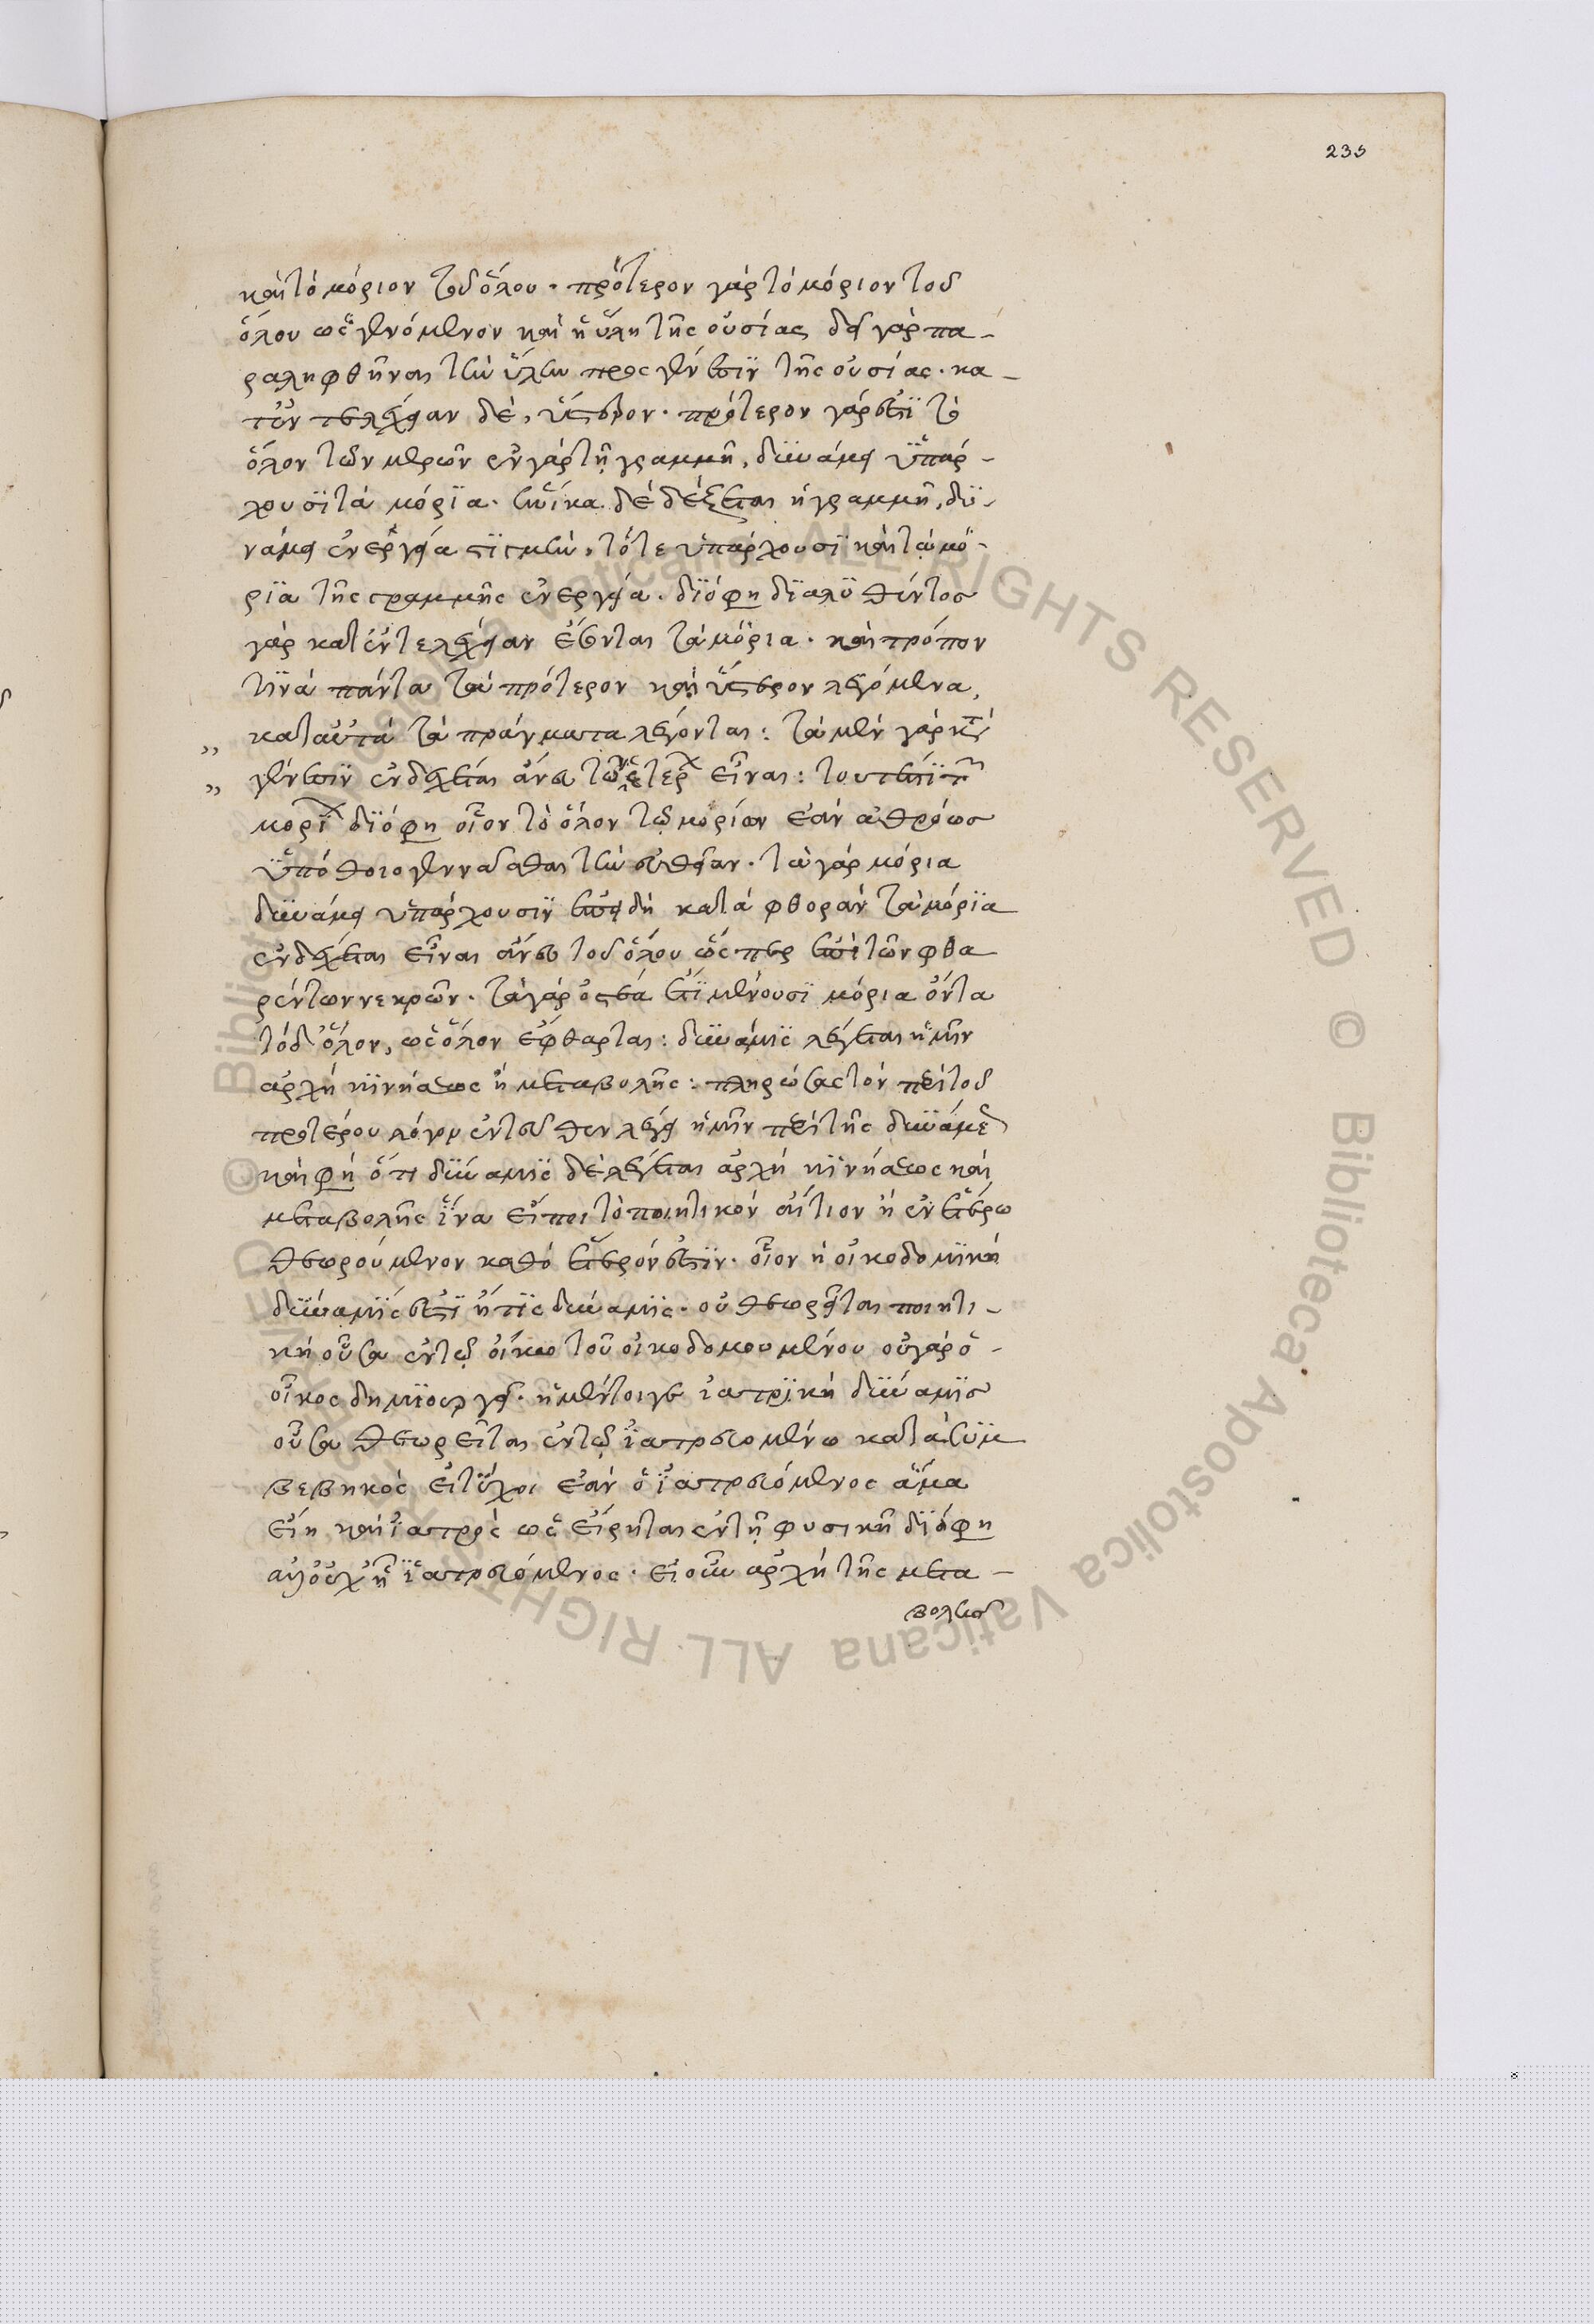 235
καὶ τὸ μόριον τοῦ ὅλου · πρότερον γὰρ τὸ μόριον τοῦ
ὅλου ὡς γενόμενον καὶ ἡ ὕλη τῆς οὐσίας δεῖ γὰρ πα-
ραληφθῆναι τὴν ὕλην πρὸς γένεσιν τῆς οὐσίας · κα-
τ' ἐντελέχειαν δὲ, ὕστερον · πρότερον γάρ ἐστι τὸ
ὅλον τῶν μερῶν ἐν γὰρ τῇ γραμμῇ, δυνάμει ὑπάρ-
χουσι τὰ μόρια · ἡνίκα δὲ δέξεται ἡ γραμμὴ, δυ-
νάμει ἐνεργεία στιγμὴν, τότε ὑπάρχουσι καὶ τὰ μό-
ρια τῆς γραμμῆς ἐνεργεία · διό φη διαλυθέντος
γὰρ κατ' ἐντελέχειαν ἔσονται τὰ μόρια · καὶ τρόπον
τινὰ πάντα τὰ πρότερον καὶ ὕστερον λεγόμενα,
„ κατ' αὐτὰ τὰ πράγματα λέγονται : τὰ μὲν γὰρ κατὰ
„ γένεσιν ἐνδέχεται ἄνευ τῶν ἑτέρων εἶναι : τουτέστι τῶν
μορίων διό φη οἷον τὸ ὅλον τῶν μορίων ἐὰν ἀθρόως
ὑπόθοιο γεννᾶσθαι τὴν εὐθεῖαν · τὰ γὰρ μόρια
δυνάμει ὑπάρχουσιν ἐπειδὴ κατὰ φθορὰν τὰ μόρια
ἐνδέχεται εἶναι ἄνευ τοῦ ὅλου ὥσπερ ἐπὶ τῶν φθα
ρέντων νεκρῶν · τὰ γὰρ ὀστέα ἔτι μένουσι μόρια ὄντα
τὸ δ' ὅλον, ὡς ὅλον ἔφθαρται : δύναμις λέγεται ἡ μὲν
ἀρχὴ κινήσεως ἢ μεταβολῆς : πληρώσας τὸν περὶ τοῦ
προτέρου λόγον ἐντεῦθεν λέγει ἡμῖν περὶ τῆς δυνάμεως
καὶ φη ὅτι δύναμις δὲ λέγεται ἀρχὴ κινήσεως καὶ
μεταβολῆς ἵνα εἴποι τὸ ποιητικὸν αἴτιον ἡ ἐν ἑτέρω
θεωρούμενον καθὸ ἕτερόν ἐστιν · οἷον ἡ οἰκοδομικὴ
δύναμίς ἐστι ἥτις δύναμις · οὐ θεωρεῖται ποιητι-
κὴ οὖσα ἐν τῷ οἴκω τοῦ οἰκοδομουμένου οὐ γὰρ ὁ-
οἶκος δημιουργεῖ · ἡ μέντοιγε ἰατρικὴ δύναμις
οὖσα θεωρεῖται ἐν τῷ ἰατρευομένω κατὰ συμ
βεβηκὸς εἰ τύχοι ἐὰν ὁ ἰατρευόμενος ἅμα
εἴη καὶ ἰατρὸς ὡς εἴρηται ἐν τῇ φυσικῇ διό φη
ἀλλ' οὐχ ᾗ ἰατρευόμενος · εἰ οὖν ἀρχὴ τῆς μετα-
βολῆς
© Biblioteca Apostolica Vaticana ALL RIGHTS RESERVED © Biblioteca Apostolica Vaticana ALL RIGHTS RESERVED